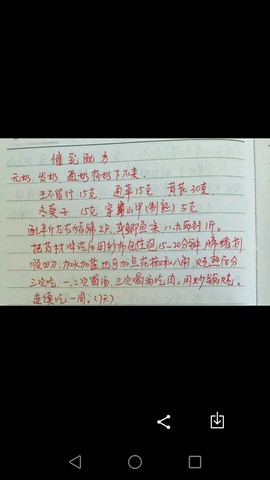 催乳配方
无奶,少奶,面奶有奶下不来.
王不留行 15克, 通草15克 黄芪 30克.
冬葵子 15克 穿山甲(制熟) 5克
配半斤左右猪蹄2只,或鲫鱼 八九两到1斤.
把药材 冲洗后用纱布包住泡15-20分钟 蹄猪划
成四刀,加水加盐,也可加点花椒和八角,炖熟后分
三次吃,一二次喝汤,三次喝汤吃肉.用砂锅炖.
连续吃一周.(7天)